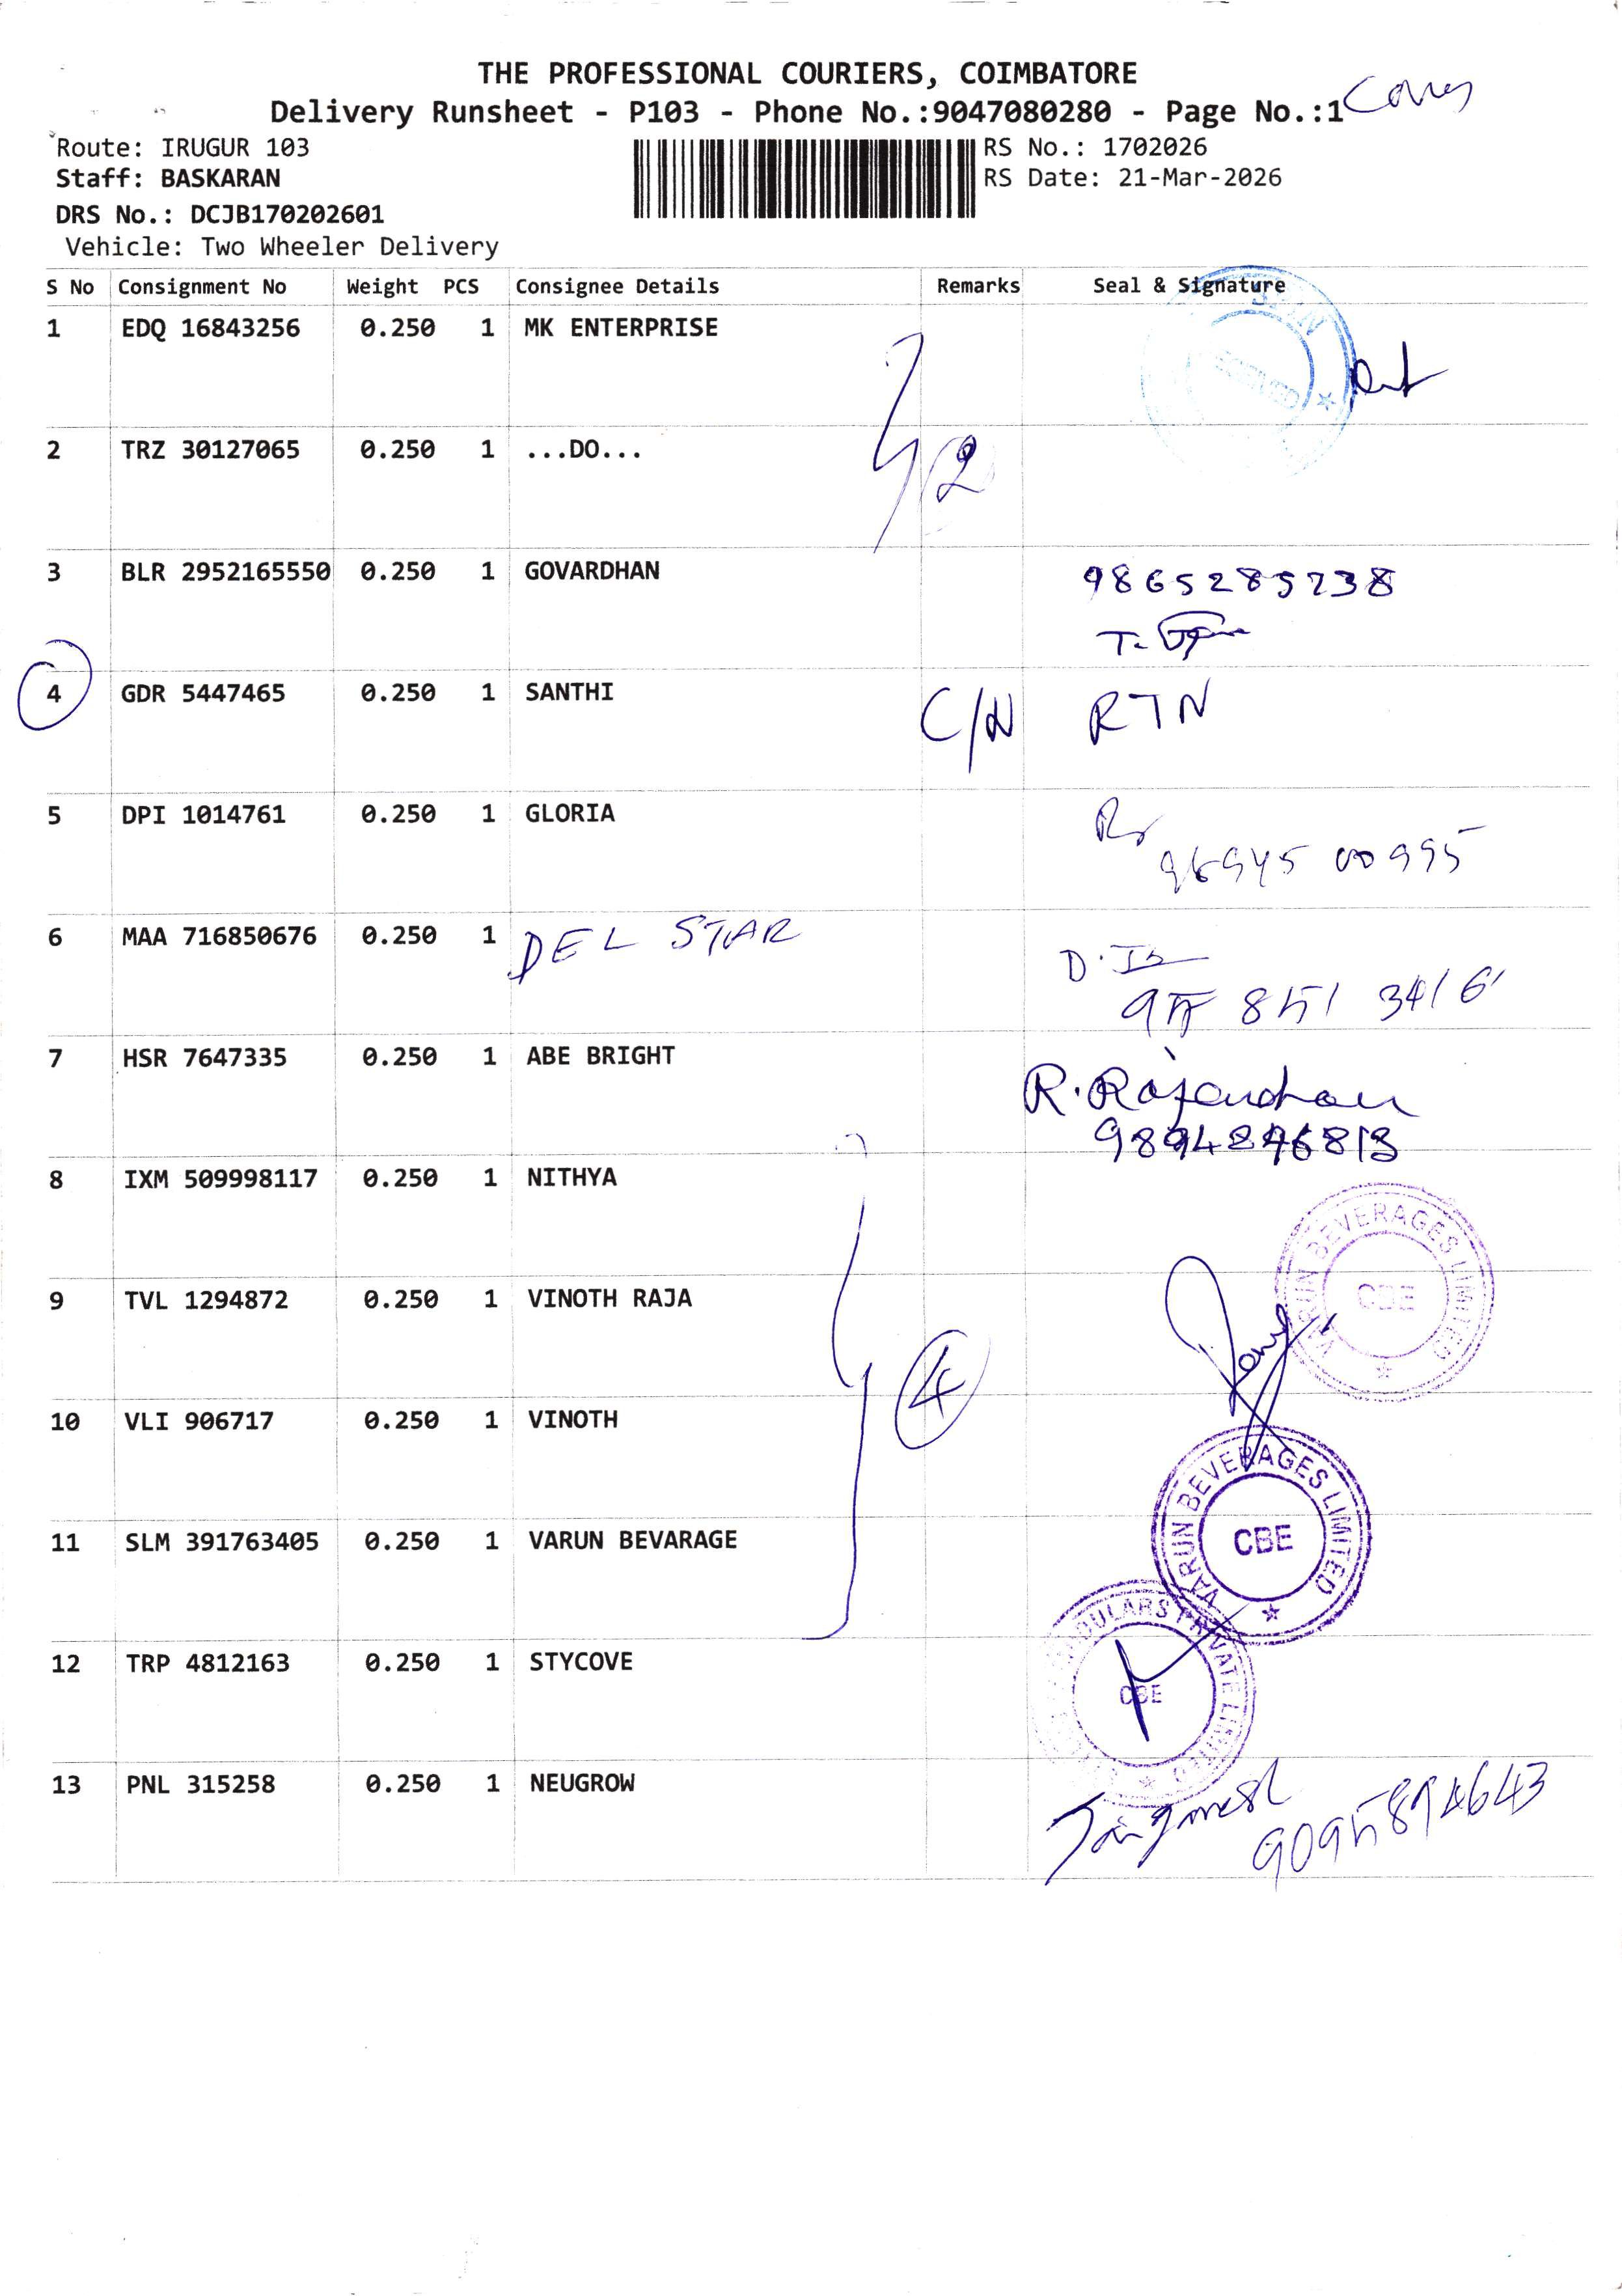 THE PROFESSIONAL COURIERS, COIMBATORE
Delivery Runsheet - P103 - Phone No.:9047080280 - Page No.:1
Route: IRUGUR 103
RS No.: 1702026
Staff: BASKARAN
RS Date: 21-Mar-2026
DRS No.: DCJB170202601
Vehicle: Two Wheeler Delivery
S No Consignment No Weight PCS Consignee Details Remarks Seal & Signature
1 EDQ 16843256 0.250 1 MK ENTERPRISE
2 TRZ 30127065 0.250 1 ...DO...
2
3 BLR 2952165550 0.250 1 GOVARDHAN
9865285238
4 GDR 5447465 0.250 1 SANTHI C/N RTN
5 DPI 1014761 0.250 1 GLORIA
6 MAA 716850676 0.250 1 DEL STAR
7 HSR 7647335 0.250 1 ABE BRIGHT
R. Rajendran
8 IXM 509998117 0.250 1 NITHYA
VARUN BEVERAGES LIMITED
CBE
9 TVL 1294872 0.250 1 VINOTH RAJA
4
10 VLI 906717 0.250 1 VINOTH
VARUN BEVERAGES LIMITED
CBE
11 SLM 391763405 0.250 1 VARUN BEVARAGE
PRIVATE LIMITED
CBE
12 TRP 4812163 0.250 1 STYCOVE
13 PNL 315258 0.250 1 NEUGROW
9095894643